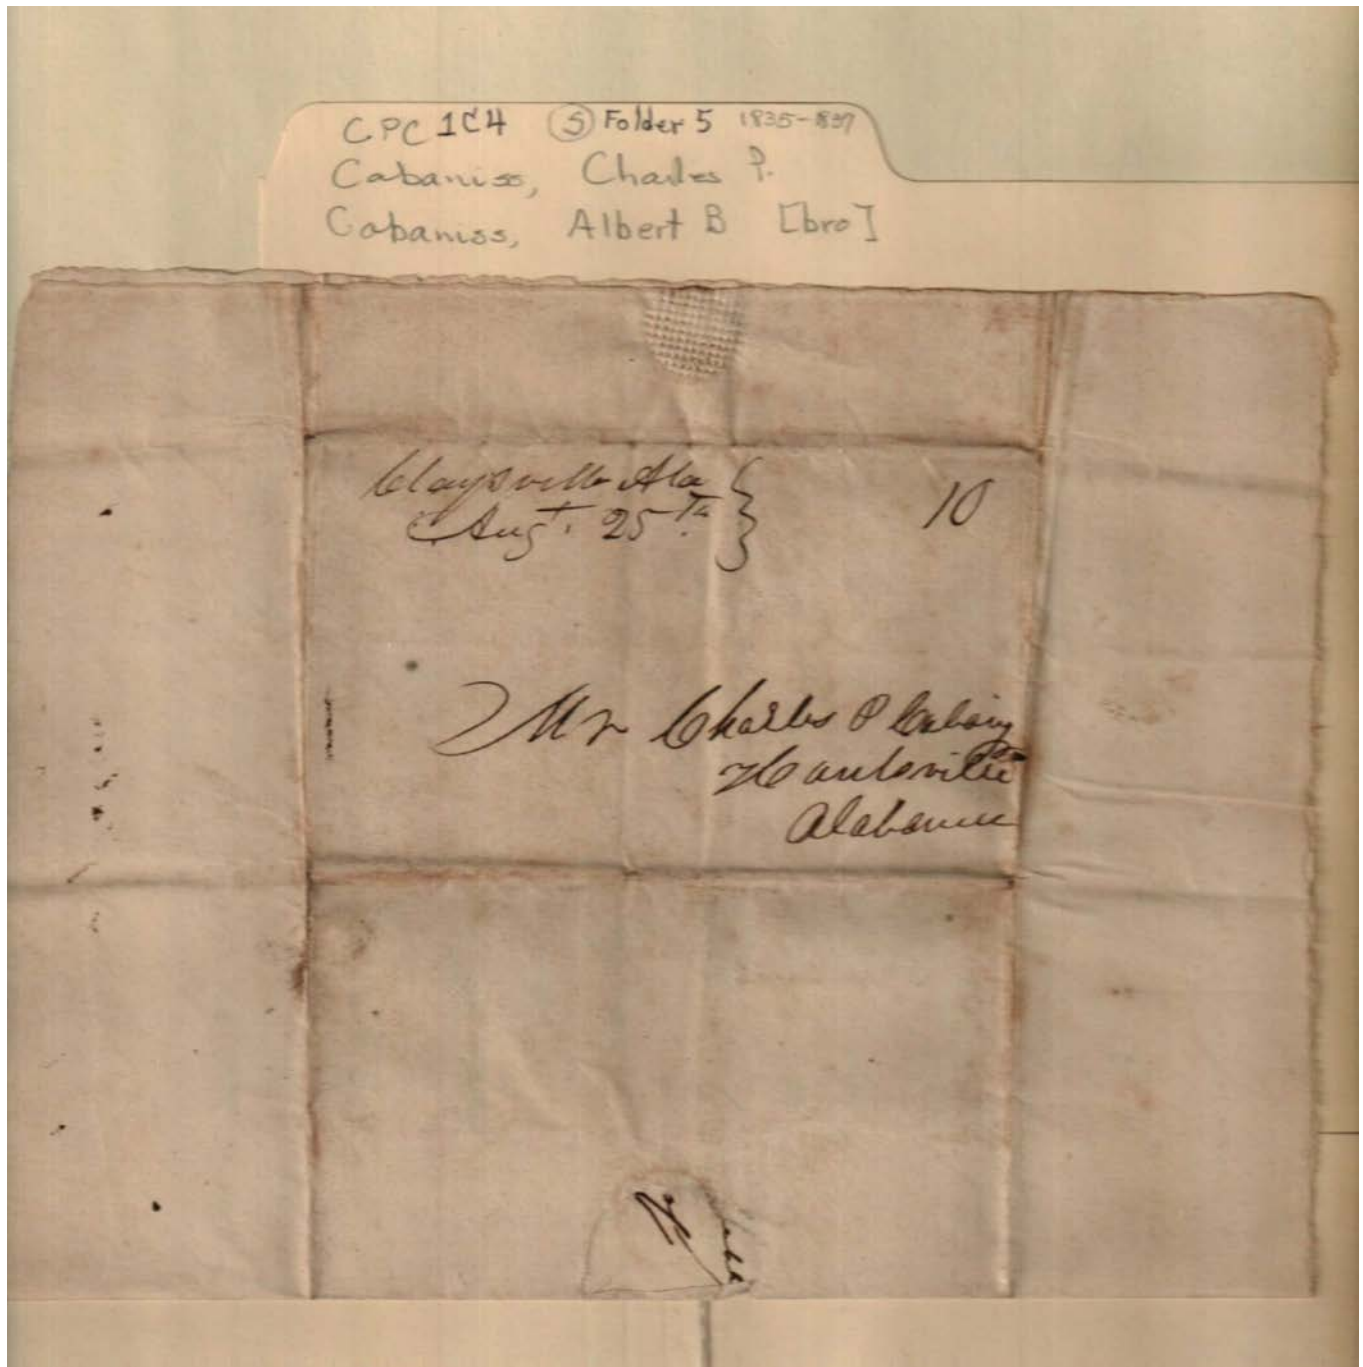 CPC 1C4 (5) Folder 5 1835-1837
Cabaniss, Charles P.
Cabaniss, Albert B [bro]
Claysville Ala
Augt. 25th.
10
Mr Charles P Cabiny
Huntsville
Alabama